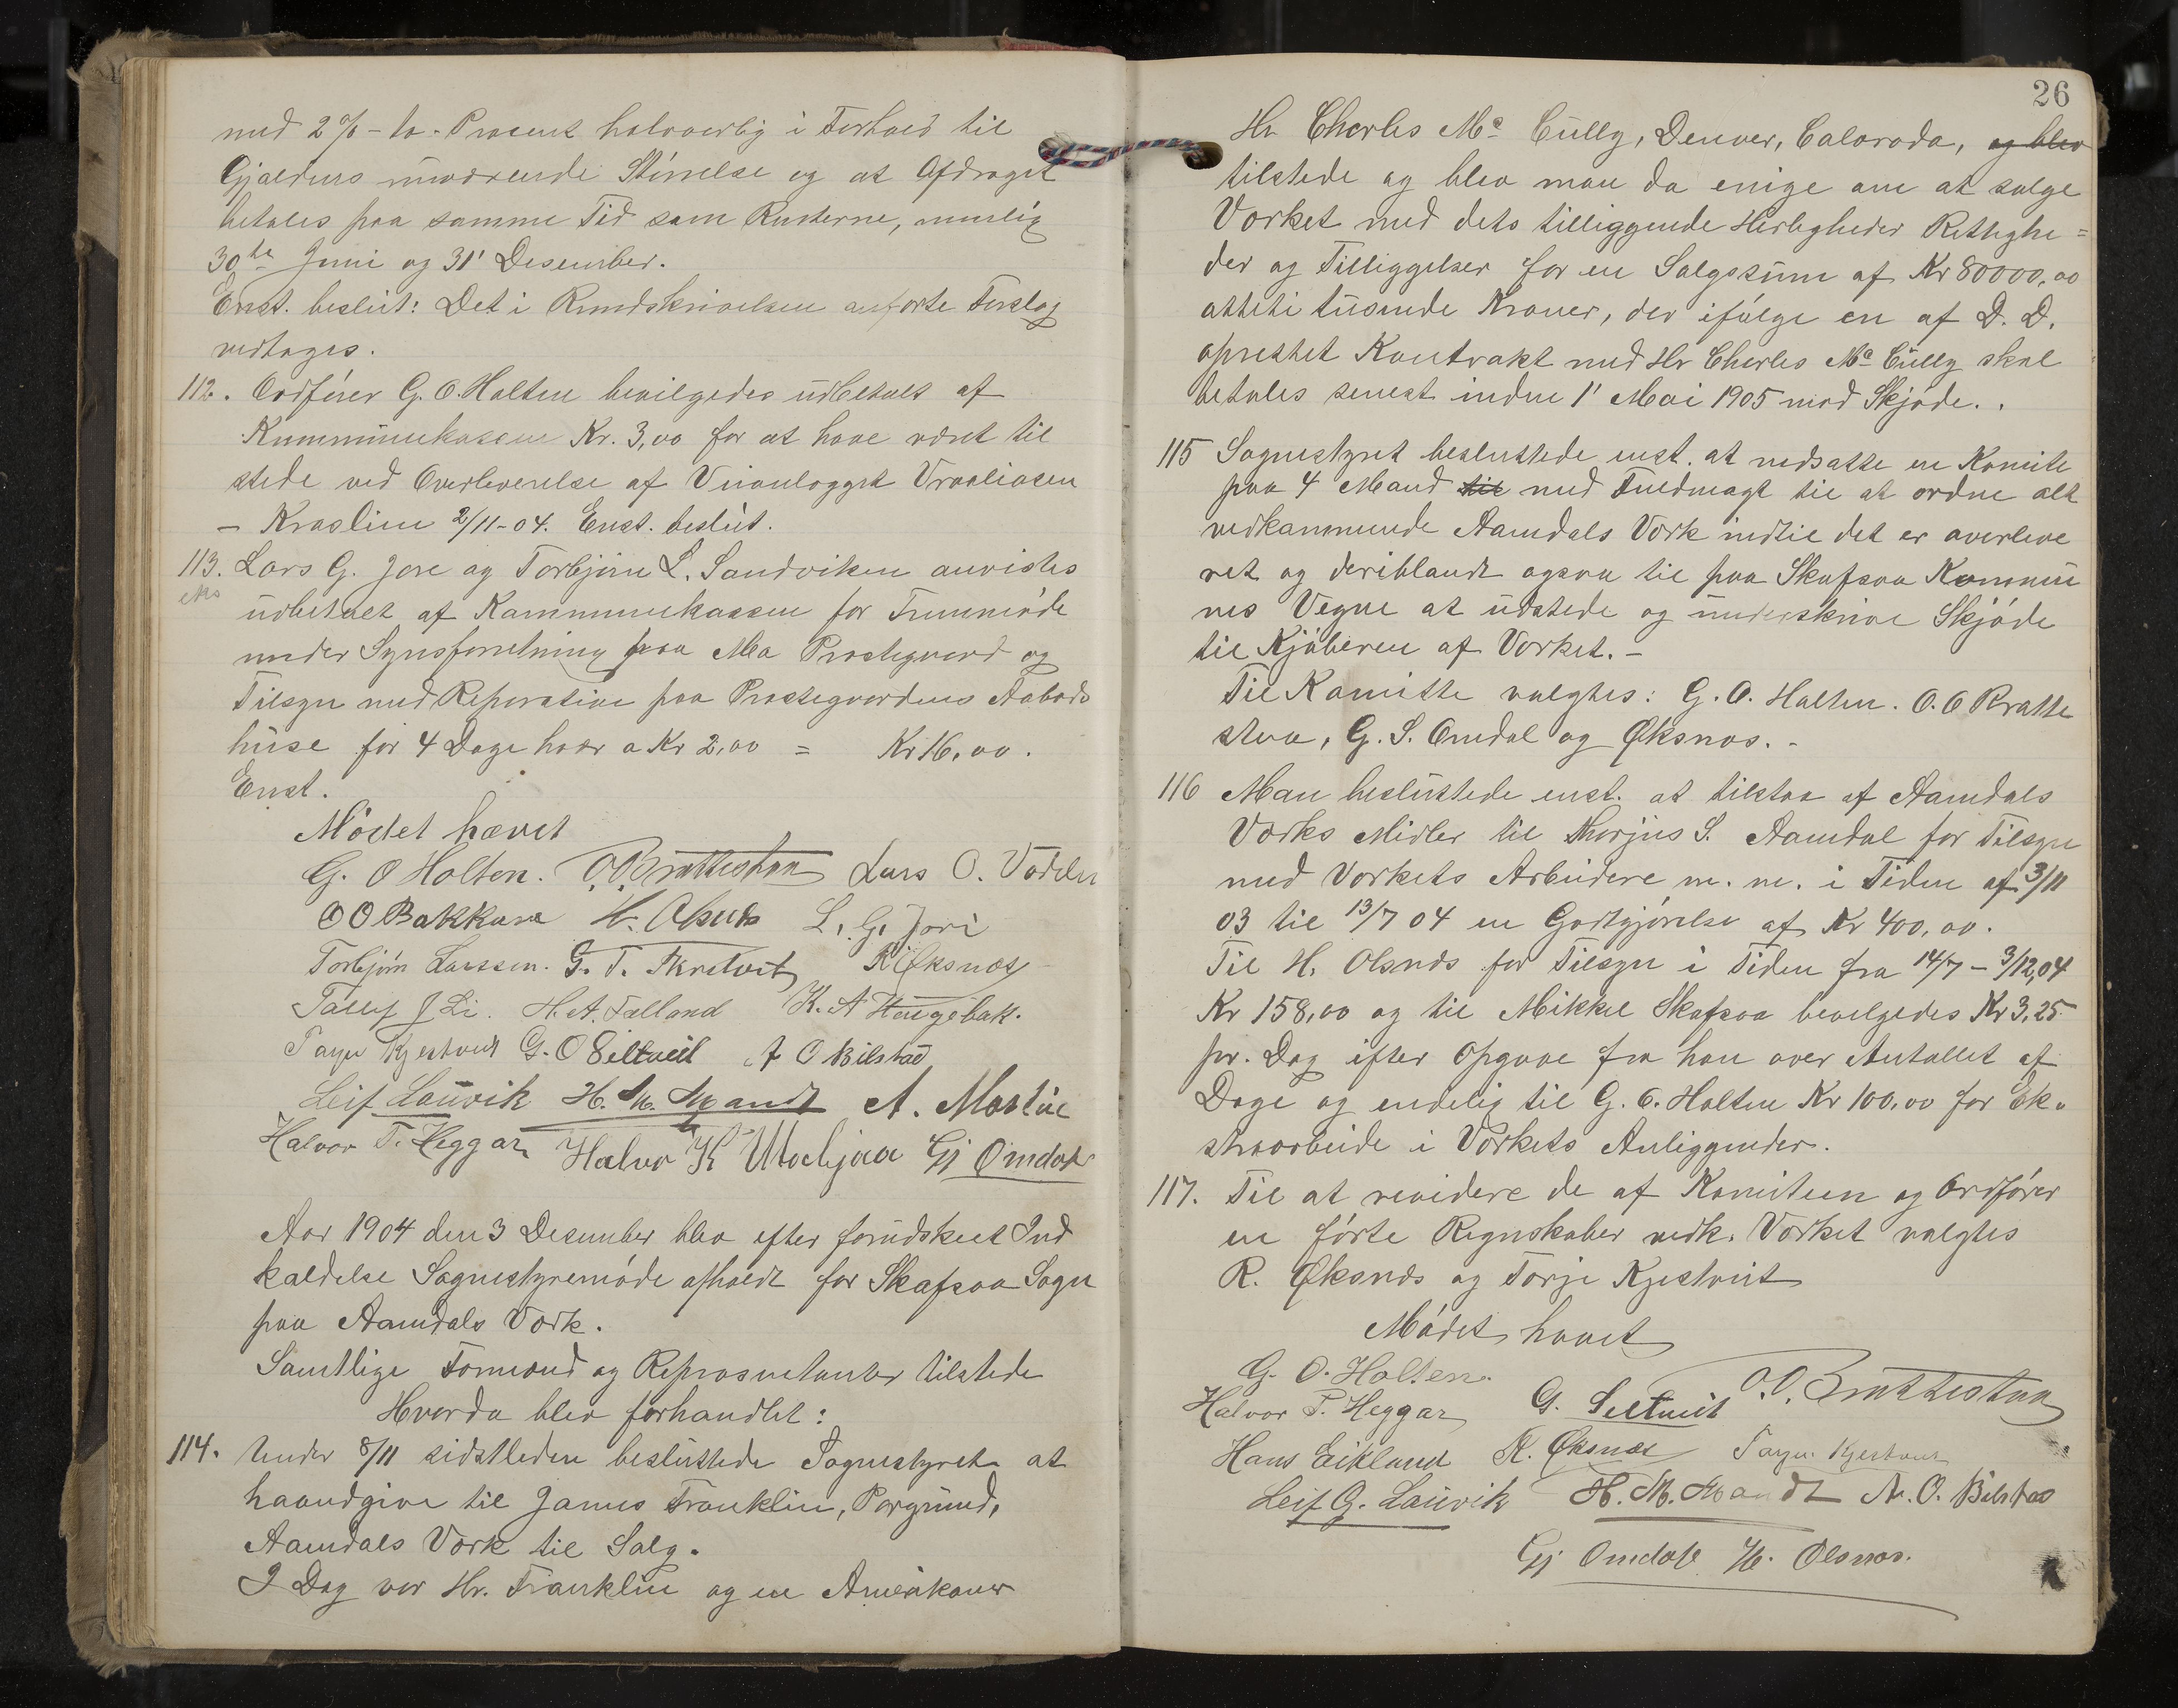 med 2% - to - Procent halvaarlig i Forhold til
Gjældens nuværende Störrelse og at Afdraget
betales paa samme Tid som Renterne, nemlig
30te Juni og 31' Desember.
Enst. beslut: Det i Rundskrivelsen anförte Forslag
vedtages.
112. Ordförer G. O. Holten bevilgedes udbetalt af
Kommunekassen Kr. 3,00 for at have været til
stede ved Overleverelse af Veianlægget Vraaliosen
- Kraslien 2/11-04. Enst. beslut.
113. Lars G. Jore og Torbjörn L. Sandviken anvistes
eks
udbetalt af Kommunekassen for Fremmöde
under Synsforretning paa Mo Prestegaard og
Tilsyn med Reparation paa Prestegaardens Aabods
huse for 4 Dage hver a Kr 2,00 = Kr 16,00.
Enst.
Mödet hævet
G. O Holten. O. O. Brattestaa Lars O. Vadder
O O Bakkane H. Olsnes L. G. Jore
Torbjörn Larssen. G. T. Skretveit R Öksnæs
Tallef J Li. H. A. Falland K. A Haugebak.
Targei Kjestveit G. O Seltveit A O Bilstad
Leif Lauvik H. M. Mandt A. Mostue
Halvor T. Heggar Halvor K Utochjaa Gj Omdal
Aar 1904 den 3 Desember blev efter forudskeet Ind
kaldelse Sognestyremöde afholdt for Skafsaa Sogn
paa Aamdals Værk.
Samtlige Formænd og Repræsentanter tilstede
Hvorda blev forhandlet:
114. Under 8/11 sidstleden besluttede Sognestyret at
haandgive til James Franklin, Porgrund,
Aamdals Værk til Salg.
I Dag var Hr. Franklin og en Amerikaner
26
Hr Charles Mc Cully, Denver, Caloroda, og blev
tilstede og blev man da enige om at sælge
Værket med dets tilliggende Herligheder Rettighe=
der og Tilliggelser for en Salgssum af Kr 80000,00
otteti tusende Kroner, der ifölge en af D. D.
oprettet Kontrakt med Hr Charles Mc Cully skal
betales senest inden 1' Mai 1905 mod Skjöde. .
115 Sognestyret besluttede enst. at nedsætte en Komite
paa 4 Mand til med Fuldmagt til at ordne alt
vedkommende Aamdals Værk indtil det er overleve
ret og deriblandt ogsaa til paa Skafsaa Kommu
nes Vegne at udstede og underskrive Skjöde
til Kjöberen af Værket. -
Til Komitte valgtes: G. O. Holten. O. O Bratte
staa, G. S. Omdal og Öksnæs. -
116 Man besluttede enst. at tilstaa af Aamdals
Værks Midler til Thorjus S. Aamdal for Tilsyn
med Værkets Arbeidere m. m. i Tiden af 3/11
03 til 13/7 04 en Godtgjörelse af Kr 400,00.
Til H. Olsnes for Tilsyn i Tiden fra 14/7 - 3/12,04
Kr 158,00 og til Mikkel Skafsaa bevilgedes Kr 3,25
pr. Dag efter Opgave fra han over Antallet af
Dage og endelig til G. O. Holten Kr 100,00 for Ek-
straarbeide i Værkets Anliggender.
117. Til at revidere de af Komiteen og Ordförer
en förte Regnskaber vedk. Værket valgtes
R. Öksnæs og Torje Kjestveit
Mödet hævet
G. O. Holten.
Halvor T. Heggar G. Seltveit O. O. Brattestaa
Hans Eikland R. Öksnæs Targei Kjestveit
Leif G. Lauvik H. M. Mandt A. O. Bilstad
Gj Omdal H. Olsnæs.